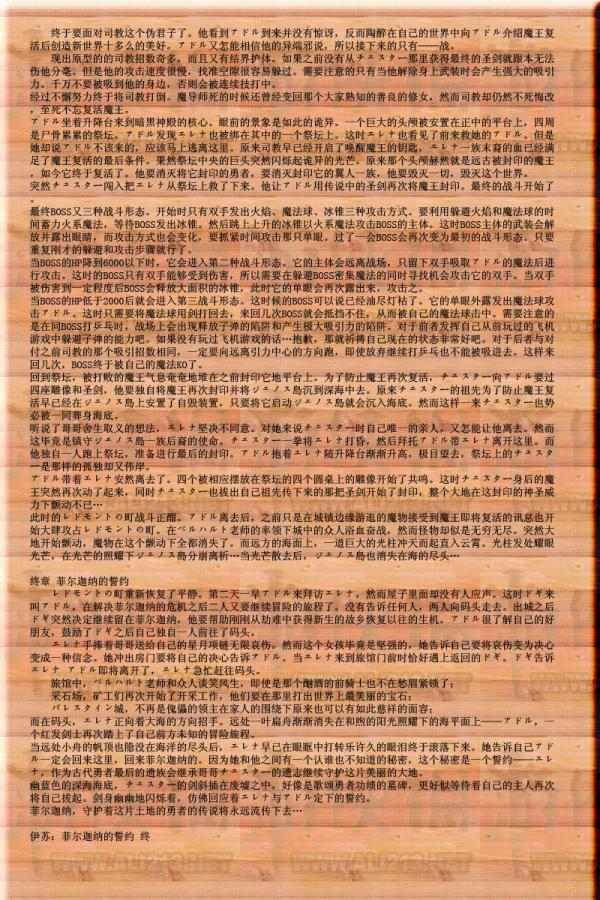 终于要面对司教这个伪君子了。他看到アドル到来并没有惊讶，反而陶醉在自己的世界中向アドル介绍魔王复
活后创造新世界十多么的美好。アドル又怎能相信他的异端邪说，所以接下来的只有——战。
现出原型的的司教招数奇多，而且又有结界护体。如果之前没有从チエスター那里获得最终的圣剑就跟本无法
伤他分毫。但是他的攻击速度很慢，找准空隙很容易躲过。需要注意的只有当他解除身上武装时会产生强大的吸引
力。千万不要被吸到他的身边，否则会被连续技打中。
经过不懈努力终于将司教打倒。魔导师死的时候还曾经变回那个大家熟知的善良的修女，然而司教却仍然不死悔改
，至死不忘复活魔王。
アドル坐着升降台来到暗黑神殿的核心。眼前的景象是如此的诡异。一个巨大的头颅被安置在正中的平台上，四周
是尸骨累累的祭坛。アドル发现エレナ也被绑在其中的一个祭坛上。这时エレナ也看见了前来救她的アドル。但是
她却说アドル不该来的，应该马上逃离这里。原来司教早已经开启了唤醒魔王的钥匙，エレナ一族末裔的血已经满
足了魔王复活的最后条件。果然祭坛中央的巨头突然闪烁起诡异的光芒。原来那个头颅赫然就是远古被封印的魔王
，如今它终于复活了。他要消灭封印它的勇者，要消灭封印它的翼人一族，他要毁灭一切，毁灭这个世界。
突然チエスター闯入把エレナ从祭坛上救了下来。他让アドル用传说中的圣剑再次将魔王封印。最终的战斗开始了
。
最终BOSS又三种战斗形态。开始时只有双手发出火焰、魔法球、冰锥三种攻击方式。要利用躲避火焰和魔法球的时
间蓄力火系魔法，等待BOSS发出冰锥。然后跳上上升的冰锥以火系魔法攻击BOSS的主体。这时BOSS主体的武装会解
放并露出眼睛，而攻击方式也会变化，要抓紧时间攻击那只单眼。过了一会BOSS会再次变为最初的战斗形态。只要
重复刚才的躲避和攻击步骤就行了。
当BOSS的HP降到6000以下时，它会进入第二种战斗形态。它的主体会远离战场，只留下双手吸取アドル的魔法后进
行攻击。这时的BOSS只有双手能够受到伤害，所以需要在躲避BOSS密集魔法的同时寻找机会攻击它的双手。当双手
被伤害到一定程度后BOSS会释放大面积的冰锥，此时它的单眼会再次露出来，攻击之。
当BOSS的HP低于2000后就会进入第三战斗形态。这时候的BOSS可以说已经油尽灯枯了。它的单眼外露发出魔法球攻
击アドル。这时只需要将魔法球用剑打回去，来回几次BOSS就会抵挡不住，从而被自己的魔法球击中。需要注意的
是在同BOSS打乒乓时，战场上会出现释放子弹的陷阱和产生极大吸引力的陷阱。对于前者发挥自己从前玩过的飞机
游戏中躲避子弹的能力吧。如果没有玩过飞机游戏的话…抱歉，那就祈祷自己现在的状态非常好吧。对于后者与对
付之前司教的那个吸引招数相同，一定要向远离引力中心的方向跑，即使放弃继续打乒乓也不能被吸进去。这样来
回几次，BOSS终于被自己的魔法KO了。
回到祭坛，被打败的魔王气息奄奄地堆在之前封印它地平台上。为了防止魔王再次复活，チエスター向アドル要过
四座雕像和圣剑，他要独自将魔王再次封印并将ジエノス島沉到深海中去。原来チエスター的祖先为了防止魔王复
活早已经在ジエノス島上安置了自毁装置，只要将它启动ジエノス島就会沉入海底。然而这样一来チエスター也势
必被一同葬身海底。
听说了哥哥舍生取义的想法，エレナ坚决不同意。对她来说チエスター时自己唯一的亲人，又怎能让他离去。然而
这毕竟是镇守ジエノス島一族后裔的使命。チエスター一拳将エレナ打昏，然后拜托アドル带エレナ离开这里。而
他独自一人跑上祭坛，准备进行最后的封印。アドル抱着エレナ随升降台渐渐升高，极目望去，祭坛上的チエスタ
ー是那样的孤独却又伟岸。
アドル带着エレナ安然离去了。四个被相应摆放在祭坛的四个圆桌上的雕像开始了共鸣。这时チエスター身后的魔
王突然再次动了起来，同时チエスター也拔出自己祖先传下来的那把圣剑开始了封印，整个大地在这封印的神圣威
力下颤动不已…
此时的レドモントの町战斗正酣。アドル离去后，之前只是在城镇边缘游逛的魔物接受到魔王即将复活的讯息也开
始大肆攻占レドモントの町。在ベルハルト老师的率领下城中的众人浴血奋战，然而怪物却似是无穷无尽。突然大
地开始颤动，魔物在这个颤动下全都消失了。而远方的海面上，一道巨大的光柱冲天而起直入云霄。光柱发处耀眼
光芒，在光芒的照耀下ジエノス島分崩离析…当光芒散去后，ジエノス島也消失在海的尽头…
终章 菲尔迦纳的誓约
レドモントの町重新恢复了平静。第二天一早アドル来拜访エレナ，然而屋子里面却没有人应声。这时ドギ来
叫アドル，在解决菲尔迦纳的危机之后二人又要继续冒险的旅程了。没有告诉任何人，两人向码头走去。出城之后
ドギ突然决定继续留在菲尔迦纳，他要帮助刚刚从劫难中获得新生的故乡恢复以往的生机。アドル很了解自己的好
朋友，鼓励了ドギ之后自己独自一人前往了码头。
エレナ手捧着哥哥送给自己的星月项链无限哀伤。然而这个女孩毕竟是坚强的，她告诉自己要将哀伤变为决心
变成一种信念。她冲出房门要将自己的决心告诉アドル。当エレナ来到旅馆门前时恰好遇上返回的ドギ。ドギ告诉
エレナ アドル即将离开了，エレナ急忙赶往码头。
旅馆中，ベルハルト老师和众人谈笑风生，即使是那个酗酒的前骑士也不在愁眉紧锁了；
采石场，矿工们再次开始了开采工作，他们要在那里打出世界上最美丽的宝石；
バレスタイン城，不再是傀儡的领主在家人的围绕下原来也可以有如此慈祥的面容；
而在码头，エレナ正向着大海的方向招手。远处一叶扁舟渐渐消失在和煦的阳光照耀下的海平面上——アドル，一
个红发剑士再次踏上了自己前方未知的冒险旅程。
当远处小舟的帆顶也隐没在海洋的尽头后，エレナ早已在眼眶中打转乐许久的眼泪终于滚落下来。她告诉自己アド
ル一定会回来这里，回来菲尔迦纳的。因为她和他之间有一个认谁也不知道的秘密，这个秘密是一个誓约——エレ
ナ，作为古代勇者最后的遗族会继承哥哥チエスター的遗志继续守护这片美丽的大地。
幽蓝色的深海海底，チエスター的剑斜插在废墟之中，好像是歌颂勇者功绩的墓碑，更好似等待着自己的主人再次
将自己拔起。剑身幽幽地闪烁着，仿佛回应着エレナ与アドル定下的誓约。
菲尔迦纳，守护着这片土地的勇者的传说将永远流传下去…
伊苏：菲尔迦纳的誓约 终